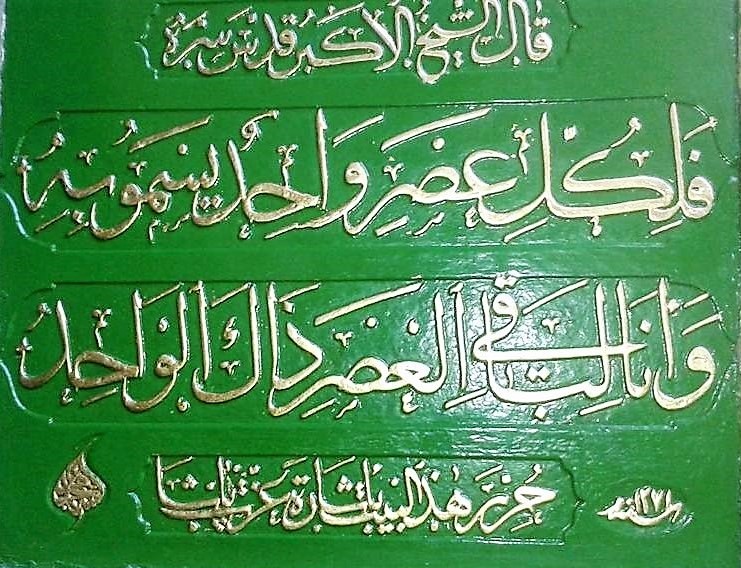 قال الشيخ الأكبر قدس سره
فَلِكُلِّ عَصْرٍ وَاحِدٌ يَسْمُو بِهِ
وَأَنَا لِبَاقِي الْعَصْرِ ذَاكَ الْوَاحِدُ
حرر هذا البيت باشارة